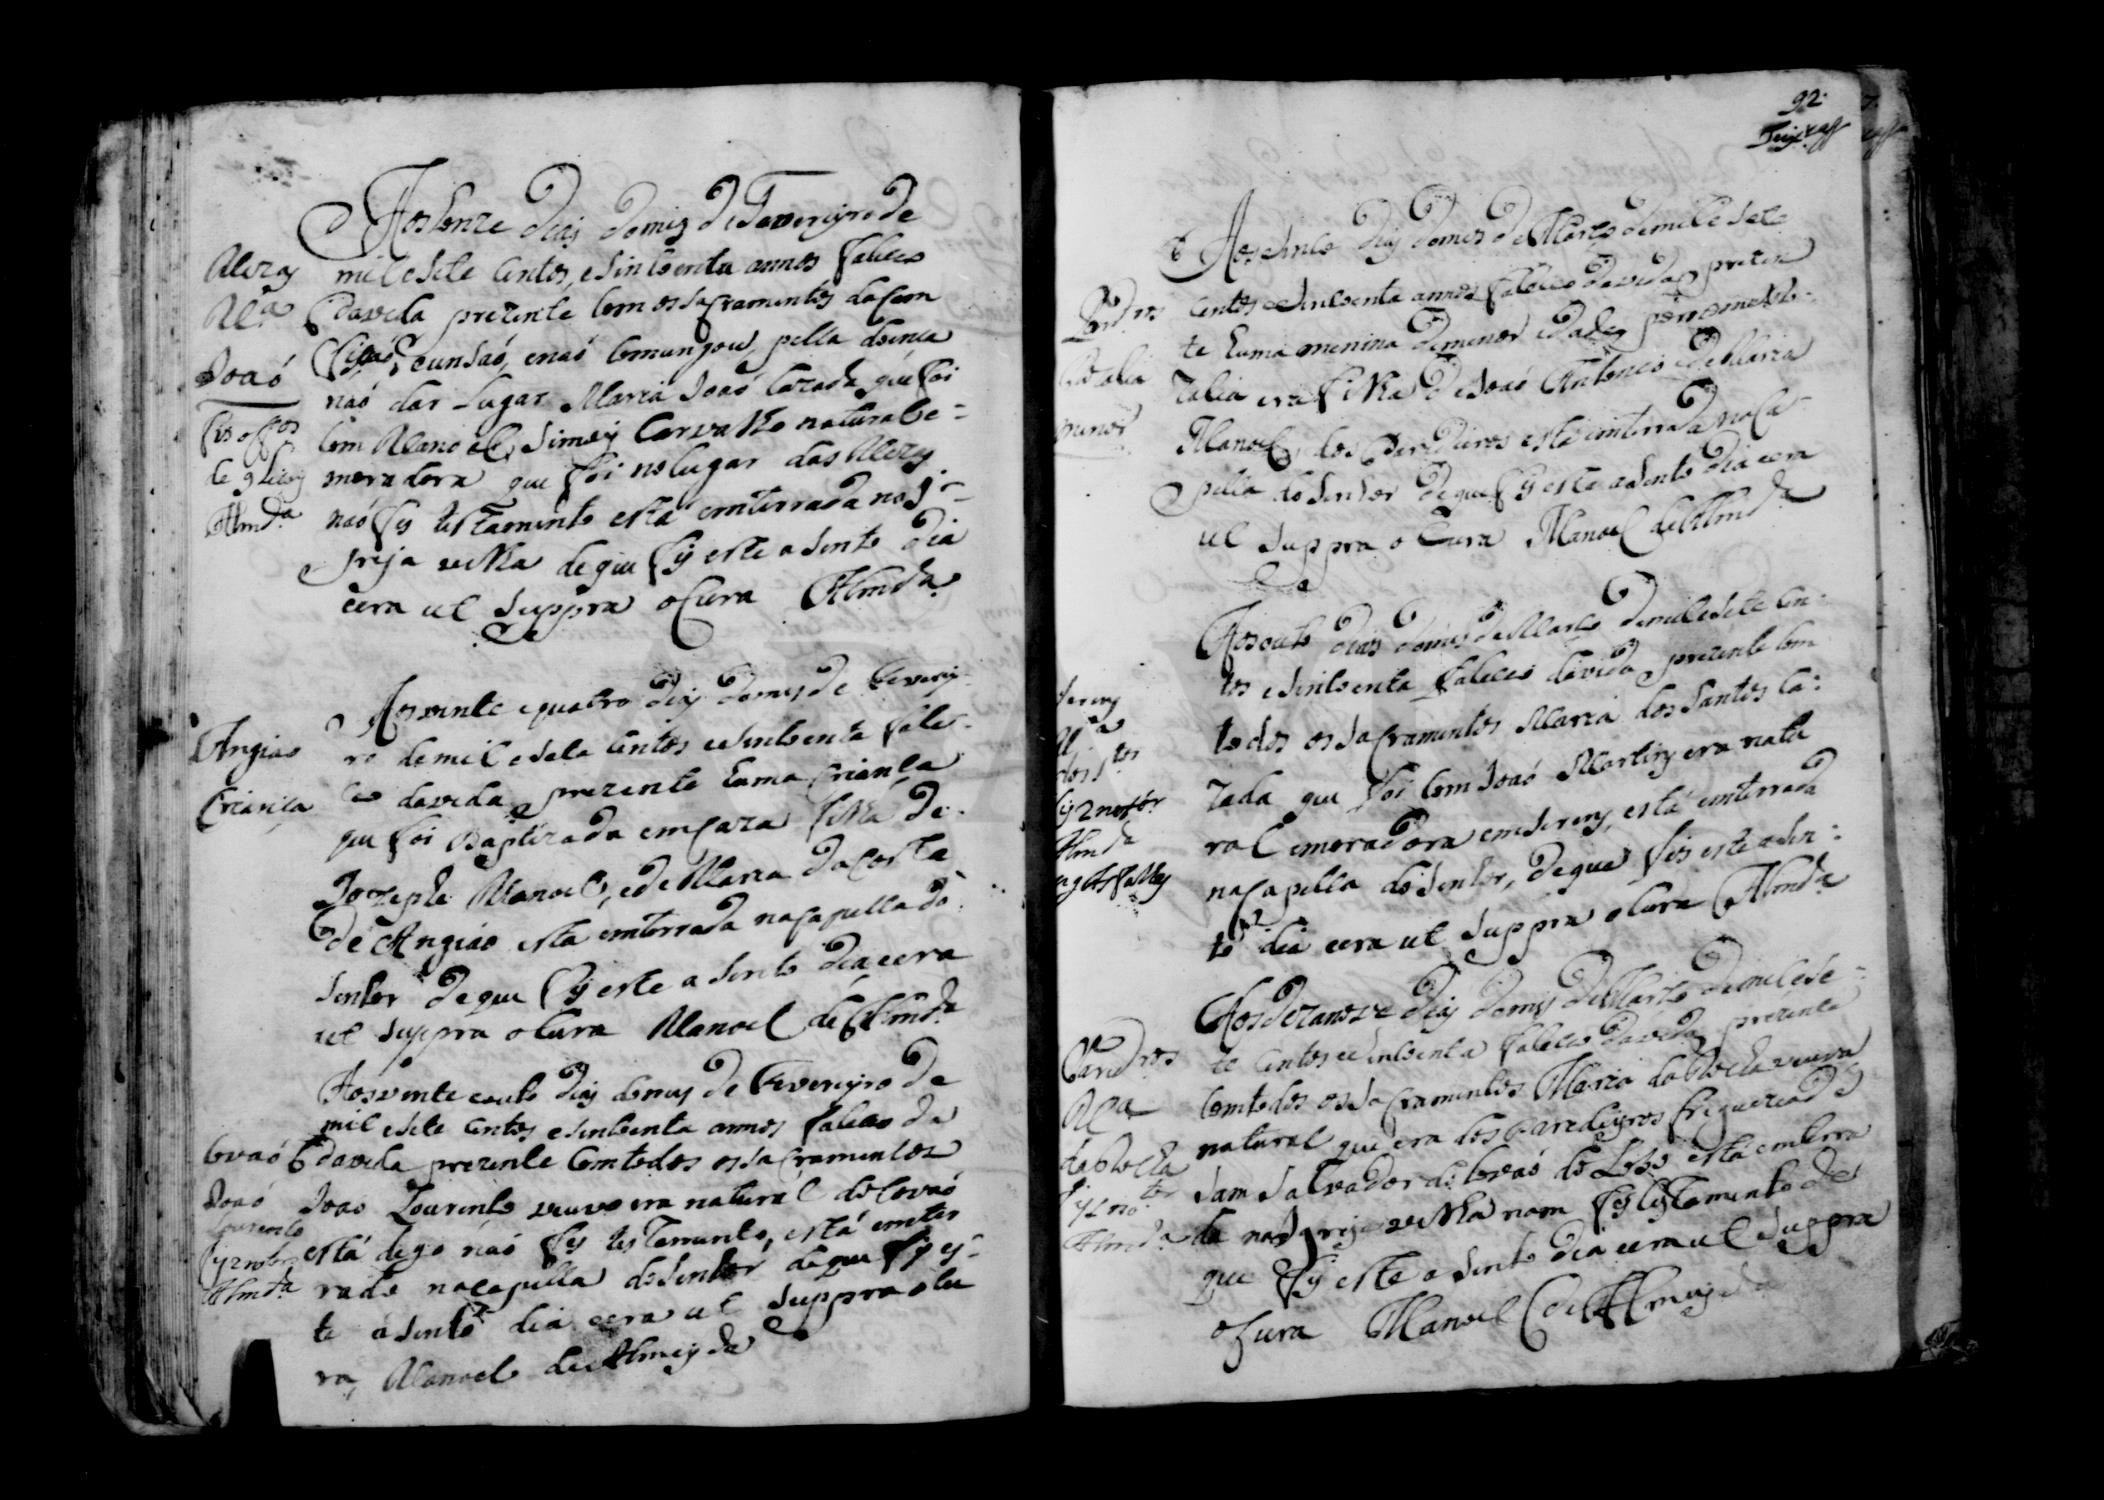 Aos honze dias do mes de Fevereyro de
mil e sete centos, e sincoenta annos faleceo
da vida prezente com os sacramentos da com
fição, e unsaó, e naó comungou pella doença
naó dar lugar Maria Joaó cazada que foi
com Manoel Simoiz Carvalho natural e =
moradora que foi no lugar das
naó fes testamento está emterrada na I =
greja velha de que fis este asento dia
e era ut suppra o Cura Almda.
Ma
Joaó
Almda
Aos vinte e quatro dias do mes de Feverey
ro de mil e sete centos e sincoenta fale =
ceo da vida prezente huma crianca
que foi Baptizada em caza filha de
Jozeph Manoel, e de Maria da Costa
de Angiao esta emterrada na capella do
Senhor de que fis este asento dia e era
ut suppra o Cura Manoel de Almda
Angiao
Criança
Aos vinte e outo dias do mes de Fevereyro de
mil e sete centos e sincoenta annos faleceo da
da vida prezente com todos os sacramentos
Joao Lourenco viuvo era natural do Covaó
está digo naó fes testemento, está emter
rado na capella do Senhor de que fis es =
te asento dia e era ut suppra o Cu
ra, Manoel de Almeyda
Covaó
Joaó
Lourenco
Almda
92.
Aos sinco dias do mes de Março de mil e sete
centos e sincoenta annos faleceo da vida prezen
te huma menina de menor idade, por nome
zalia era filha de Joaó Antonio e de Maria
Manoel, dos Paredieiros está emterrada na Ca =
pella do Senhor de que fis este asento dia e era
ut suppra o Cura Manoel de Almda
menor
Aos outo dias do mes de Março de mil e sete cen =
tos e sincoenta faleceo da vida prezente com
todos os sacramentos Maria dos Santos ca =
zada que foi com Joaó Martins era natu
ral e moradora em Serem, está emterrada
na Capella do Senhor, de que fis este asen =
to dia e era ut suppra o Cura Almda
Ma
dos Stos
Almda
Aos dezanove dias do mes de Março de mil e se =
te centos e sincoenta faleceo da vida prezente
com todos os sacramentos Maria da Rocha viuva
natural que era dos Paredieyros freguezia de
Sam Salvador de Covaó do Lobo está emterra
da na Igreja velha nam fes testamento de
que fis este asento dia e era ut suppra
o Cura Manoel de Almeyda
Paredros
Ma
da Rocha
Almda